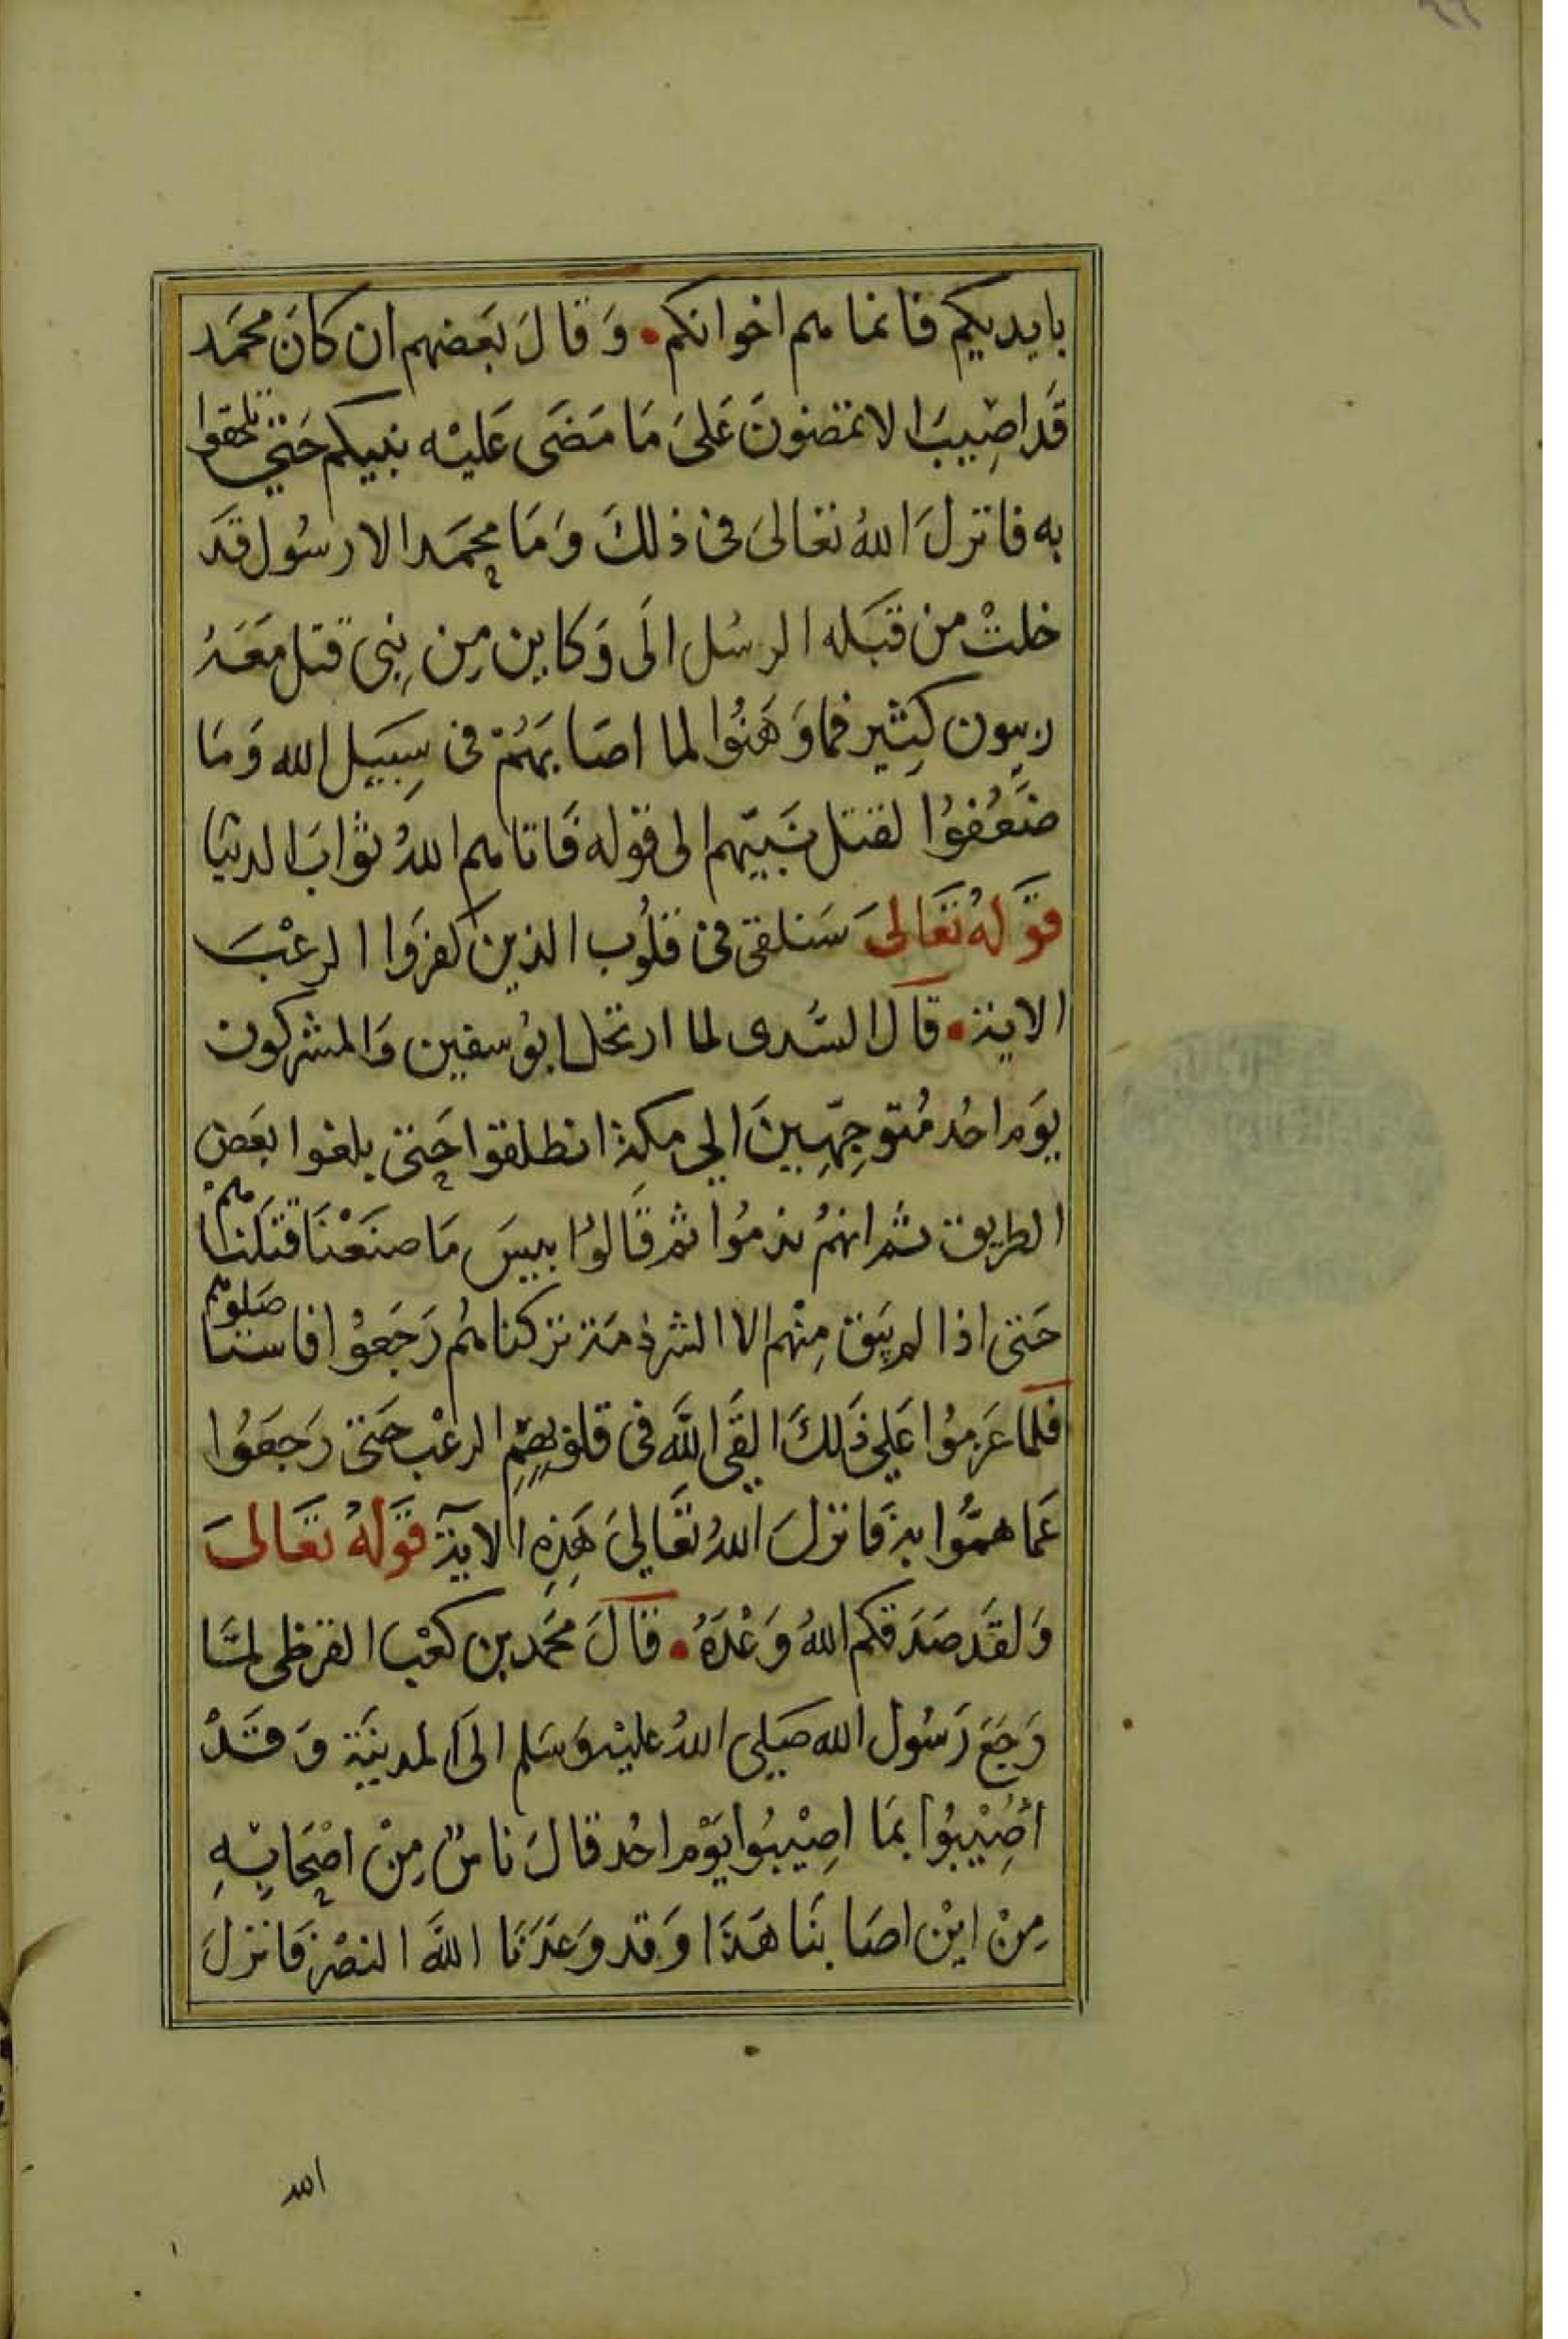 بايديكم فانما هم اخوانكم • وَقالَ بَعضهم ان كانَ محمَد
قَد اصِيبَ الا تمضونَ عَلىَ مَا مَضَى عَليْه نبيكم حَتي تلحقوا
به فانزلَ اللهُ تعالىَ فى ذلكَ وَمَا محمَد الا رسُول قدَ
خلتْ من قبَله الرسُل الَى وَكاين مِن نِبى قتل مَعَهُ
ربيون كِثير فما وَهَنُوا لما اصَابهَمُ فى سِبَيل الله وَمَا
ضَعُفوُا لقتل نَبيّهم الى قوله فَاتاهم اللهُ ثوَابَ الدنيَا
قوَلهُ تعَالىَ سَنلقى فى قلُوب الذين كفرَوا الرعْبَ
الاية • قاَل السَّدى لما ارتحل ابوُ سفين وَالمشركون
يوَم احُد مُتوجِهّيِنَ الي مكة انطلقوا حَتى بلغوا بعَض
الطريق ثم انهمُ ندموُا ثم قَالوُا بيسَ مَا صنَعْنَا قتَلنَاهم
حَتى اذا لم يَبق مِنْهم الا الشرذمَة تركناهُم رَجَعوُا فاستاصَلوهم
فلما عَزموُا عَلي ذَلكَ القَى اللَّه فى قلوبِهِمِ الرعْب حَتى رَجَعَوُا
عَما همّوُا به فَانزلَ اللهُ تعَاليَ هَذِهِ الآية قوَلهُ تعَالىَ
وَلقَد صَدَقكم اللهُ وَعْدَهُ • قَالَ محَمد بن كعْب القرظى لمّا
رَجَعَ رَسُول الله صَلي اللهُ عليْه وَسَلم الىَ المدينَة وَقدَْ
اُصِيْبوُا بمَا اصِيْبوُا يَوْم احُد قالَ ناسٌ مِنْ اصْحَابِهِ
مِنْ ايْن اصَابنَا هَذَا وَقد وَعَدَنَا اللَّه النصْر فَانزلَ
الله